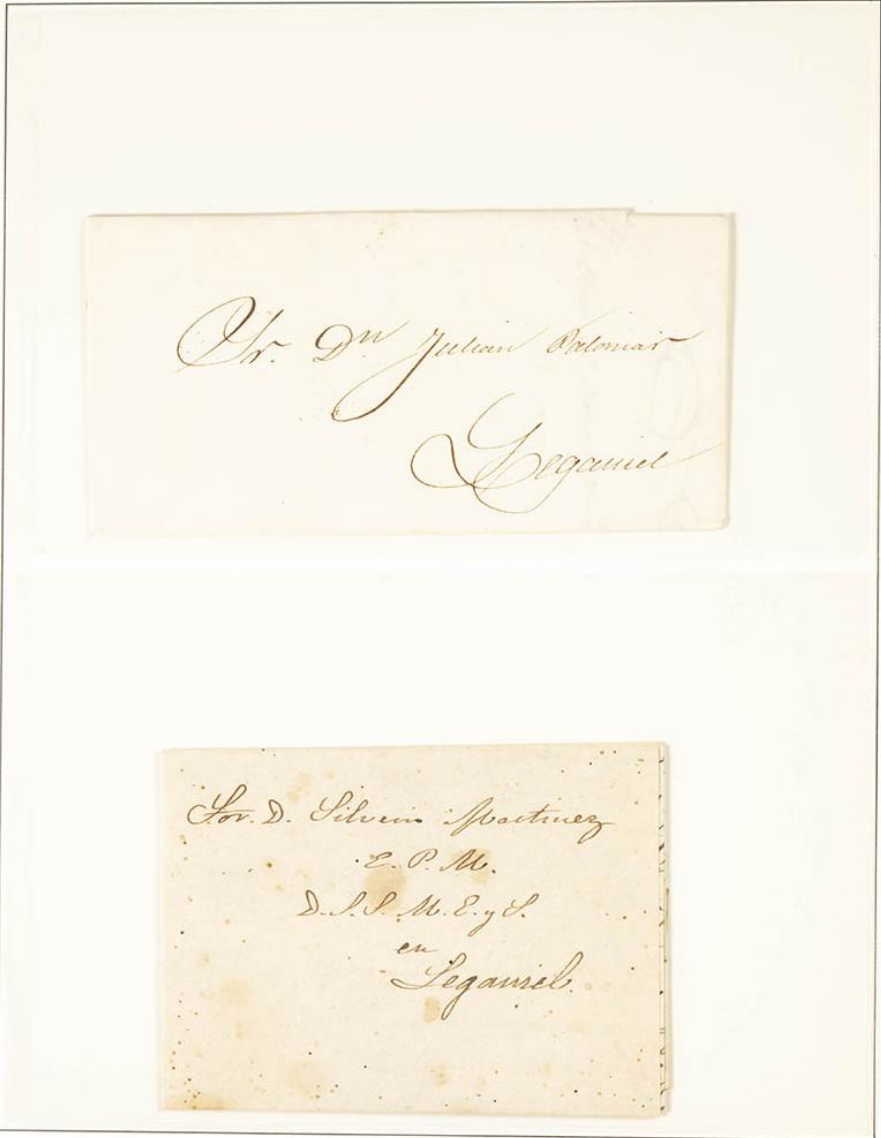 Sr. Dn Julian Palomar
Leganiel
Sor. D. Silverio Martinez
E. P. M.
D. S. S. M. E. y S.
en
Leganiel.